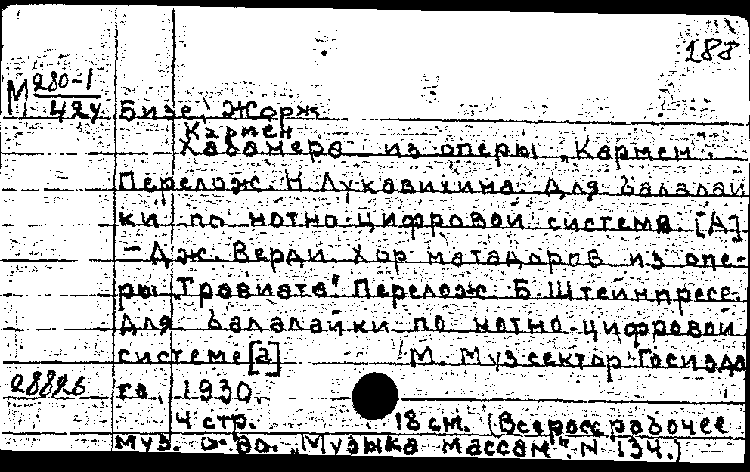 188
М 280-1
424 Бизе, Жорж
Кармен
Хабанера из оперы „Кармен".
Перелож. Н. Лукавихина. Для балалай
ки по нотно-цифровой системе. [А]
— Дж. Верди. Хор матадоров из опе-
ры „Травиата". Перелож. Б. Штейнпресс.
Для балалайки по нотно-цифровой
системе [а] М. Муз сектор Госизда
28826 та, 1930.
4 стр. 18 см. (Всеросс. рабочее
муз. о-во. „Музыка массам". N 134.)